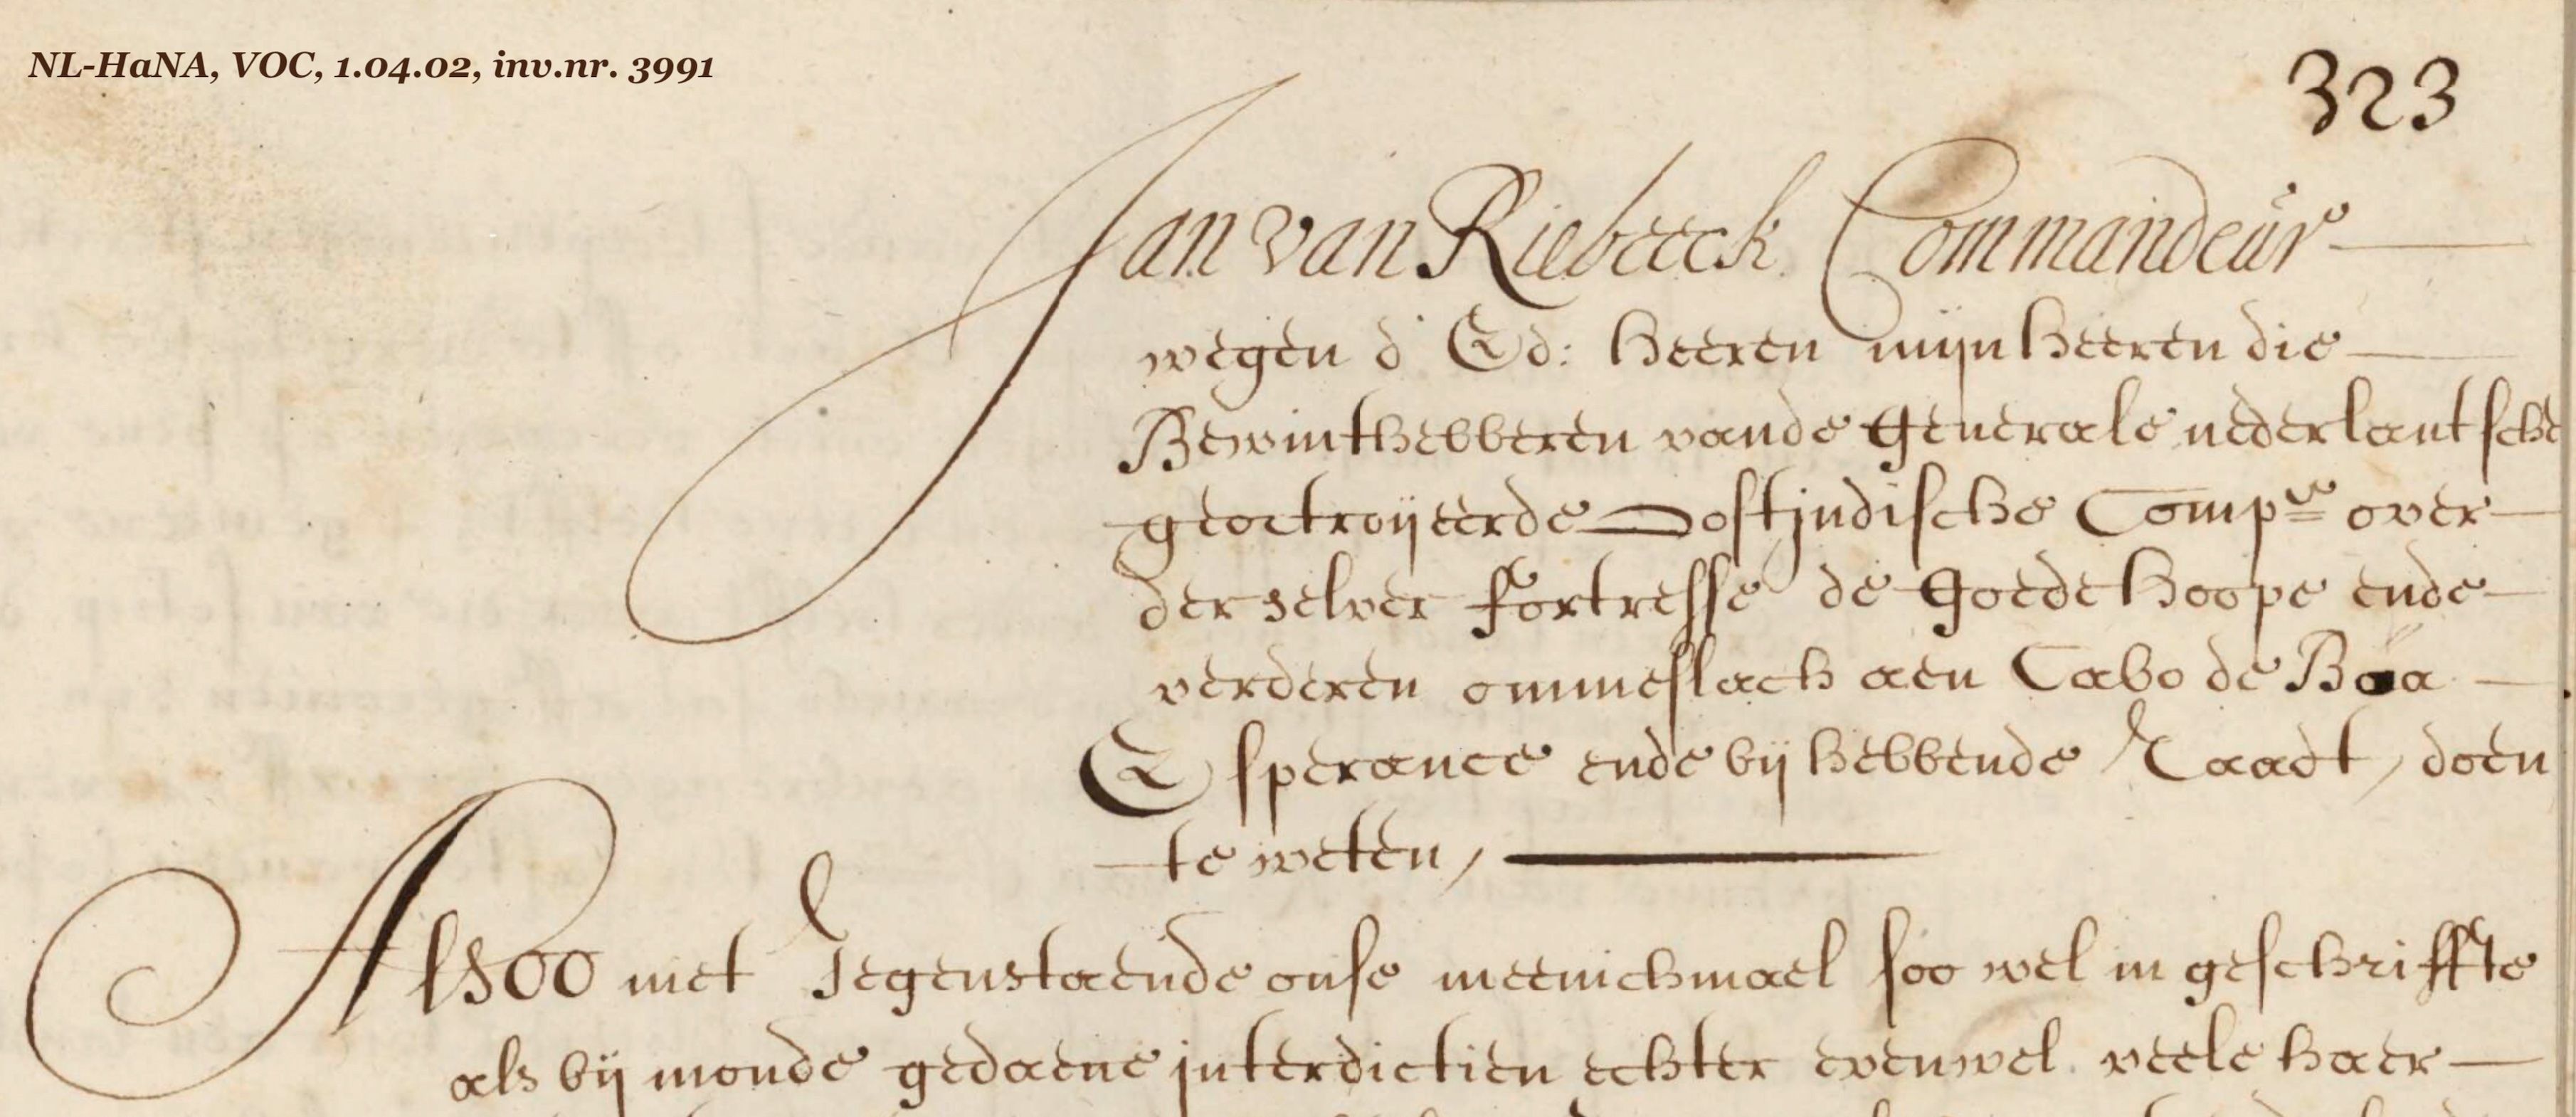 NL-HaNA, VOC, 1.04.02, inv.nr. 3991
323
Jan van Riebeeck Commandeur
wegen d' Ed: heeren mijn heeren die
Bewinthebberen vande Generale nederlantsche
geoctroijeerde Oostjndische Compe over
der selver fortresse de Goede hoope ende
verderen ommeslach aen Cabo de Boa
Esperance ende bij hebbende Raadt, doen
te weten,
Alsoo niet Jegenstaende onse meenichmael soo wel in geschriffte
als bij monde gedaene jnterdictien echter evenwel veele haer